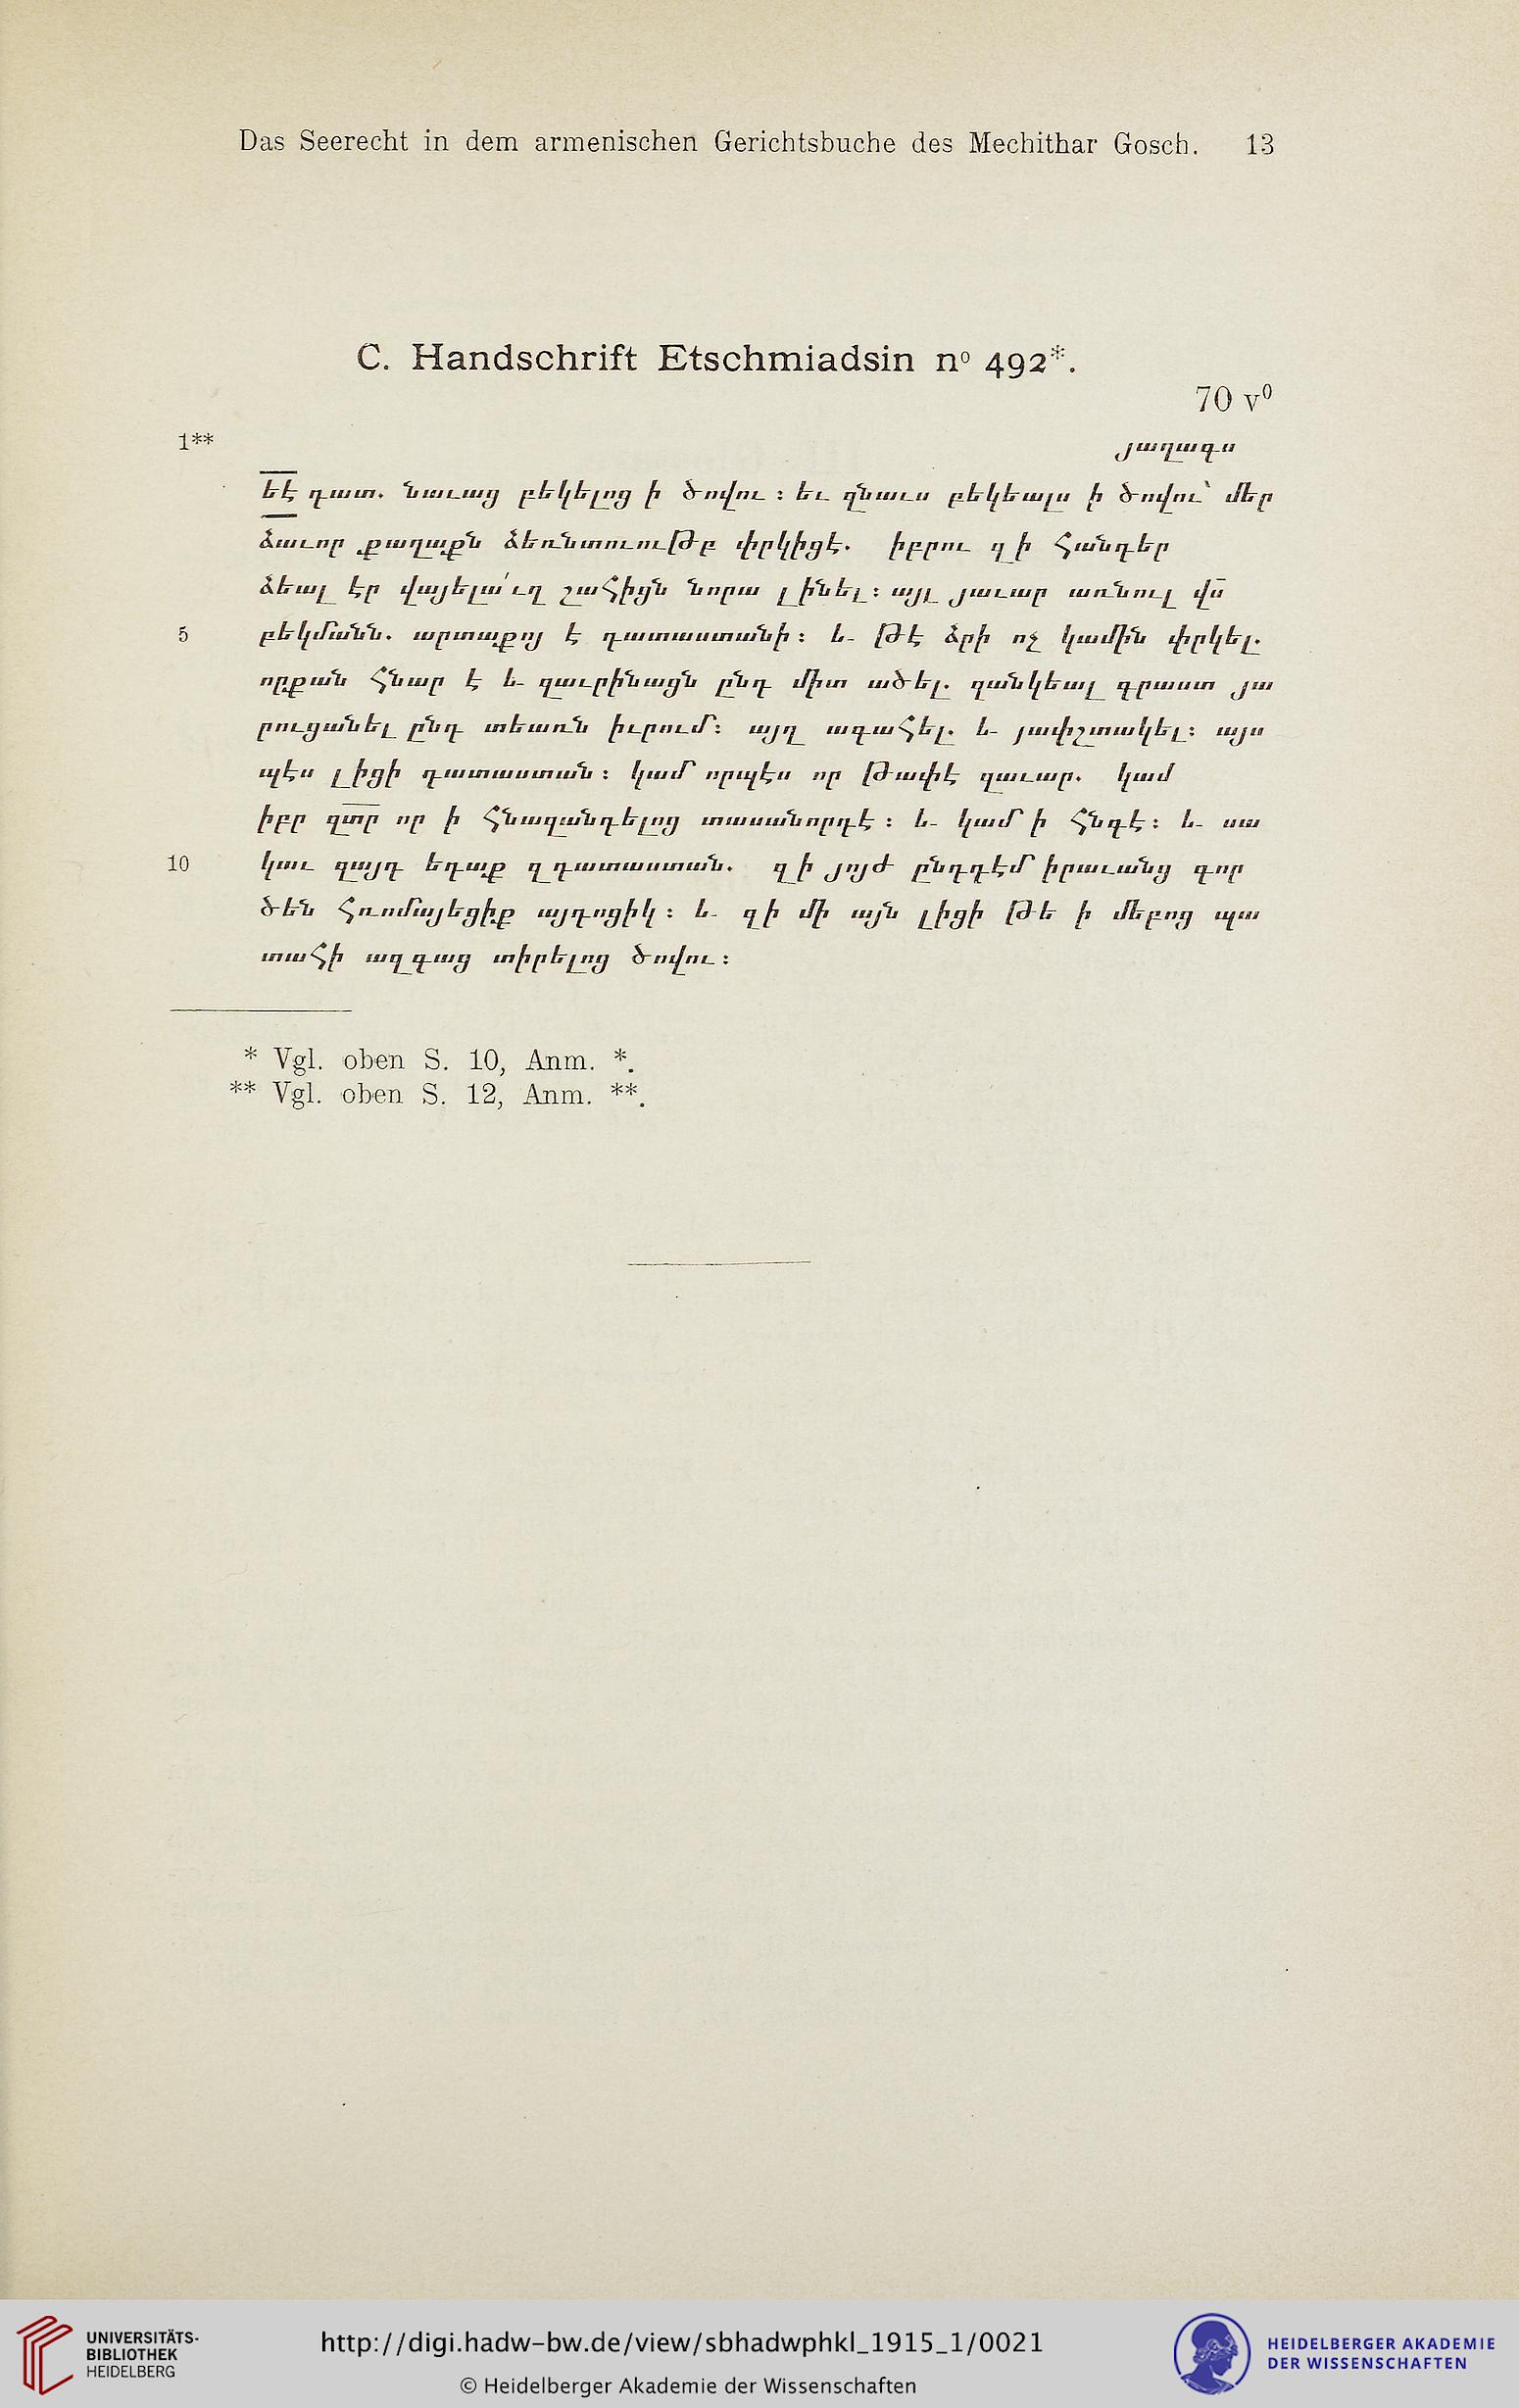 Das Seerecht in dem armenischen Gerichtsbuche des Mechithar Gosch. 13
C. Handschrift Etschmiadsin nº 492*.
70 v⁰
1** յաղագս
ԵԷ դատ. նաւաց բեկելոց ի ծովու : եւ զնաւս բեկեալս ի ծովու՝ մեր
ձաւոր քաղաքն ձեռնտուութբ փրկիցէ. իբրու զի հանդեր
ձեալ էր վայելա՛ւղ շահիցն նորա լինել : այլ յաւար առնուլ վս̄
5 բեկմանն. արտաքոյ է դատաստանի : և թէ ձրի ոչ կամին փրկել.
որքան հնար է և զաւրինացն ընդ միտ ածել. զանկեալ գրաստ յա
րուցանել ընդ տեառն իւրում : այղ ագահել. և յափշտակել : այս
պէս լիցի դատաստան : կամ որպէս որ թափէ զաւար. կամ
իբր զտր որ ի հնազանդելոց տասանորդէ : և կամ ի հնգէ : և սա
10 կաւ զայդ եդաք զդատաստան. զի յոյժ ընդդէմ իրաւանց գոր
ծեն հռոմայեցիք այդոցիկ : և զի մի այն լիցի թե ի մեբոց պա
տահի ազգաց տիրելոց ծովու :
* Vgl. oben S. 10, Anm. *.
** Vgl. oben S. 12, Anm. **.
UNIVERSITÄTS-
BIBLIOTHEK
HEIDELBERG
http://digi.hadw-bw.de/view/sbhadwphkl_1915_1/0021
© Heidelberger Akademie der Wissenschaften
HEIDELBERGER AKADEMIE
DER WISSENSCHAFTEN